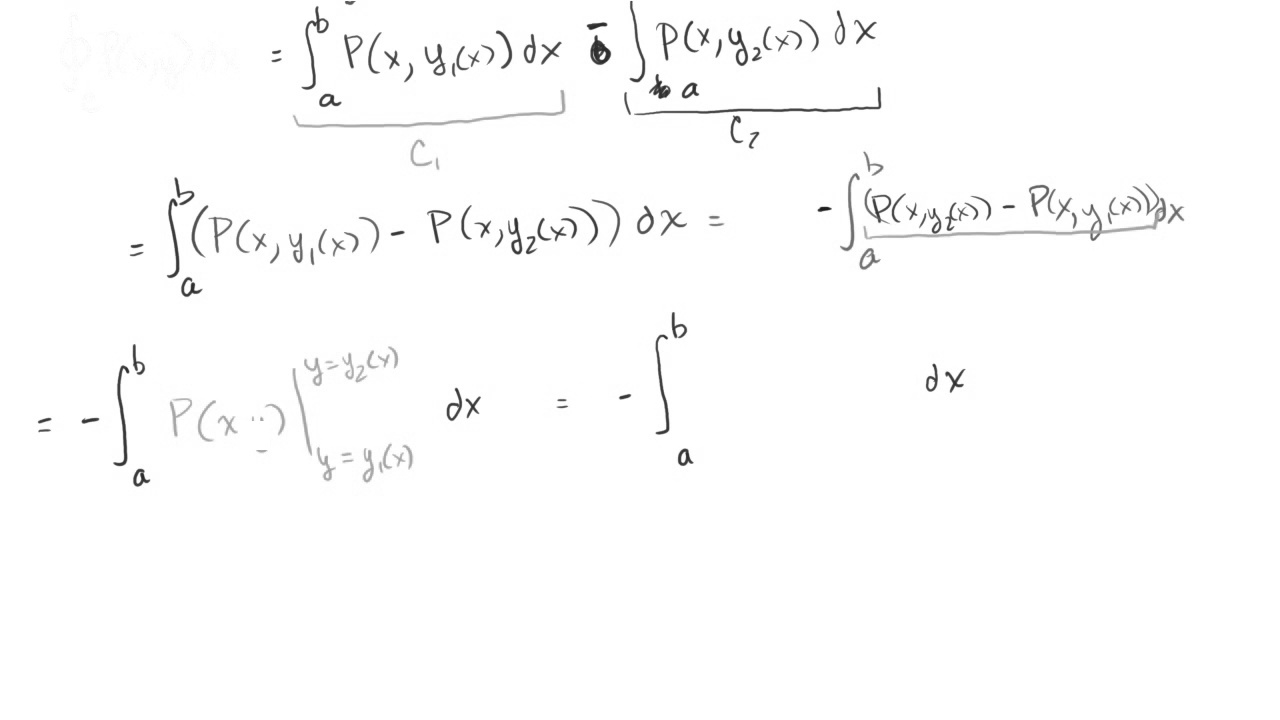 = ∫_a^b P(x, y₁(x)) dx - ∫_a P(x, y₂(x)) dx
C₁ C₂
= ∫_a^b (P(x, y₁(x)) - P(x, y₂(x))) dx = - ∫_a^b (P(x, y₂(x)) - P(x, y₁(x))) dx
= - ∫_a^b P(x ..) |_{y = y₁(x)}^{y = y₂(x)} dx = - ∫_a^b dx